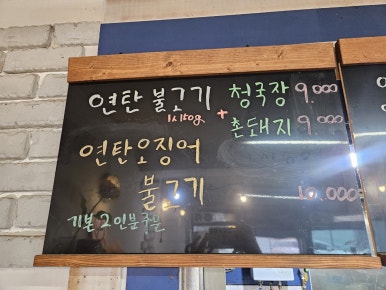 연탄 불고기 + 청국장 9.000
1人150g
촌돼지 9.000
연탄오징어
불고기 10.000
기본 2인분 주문